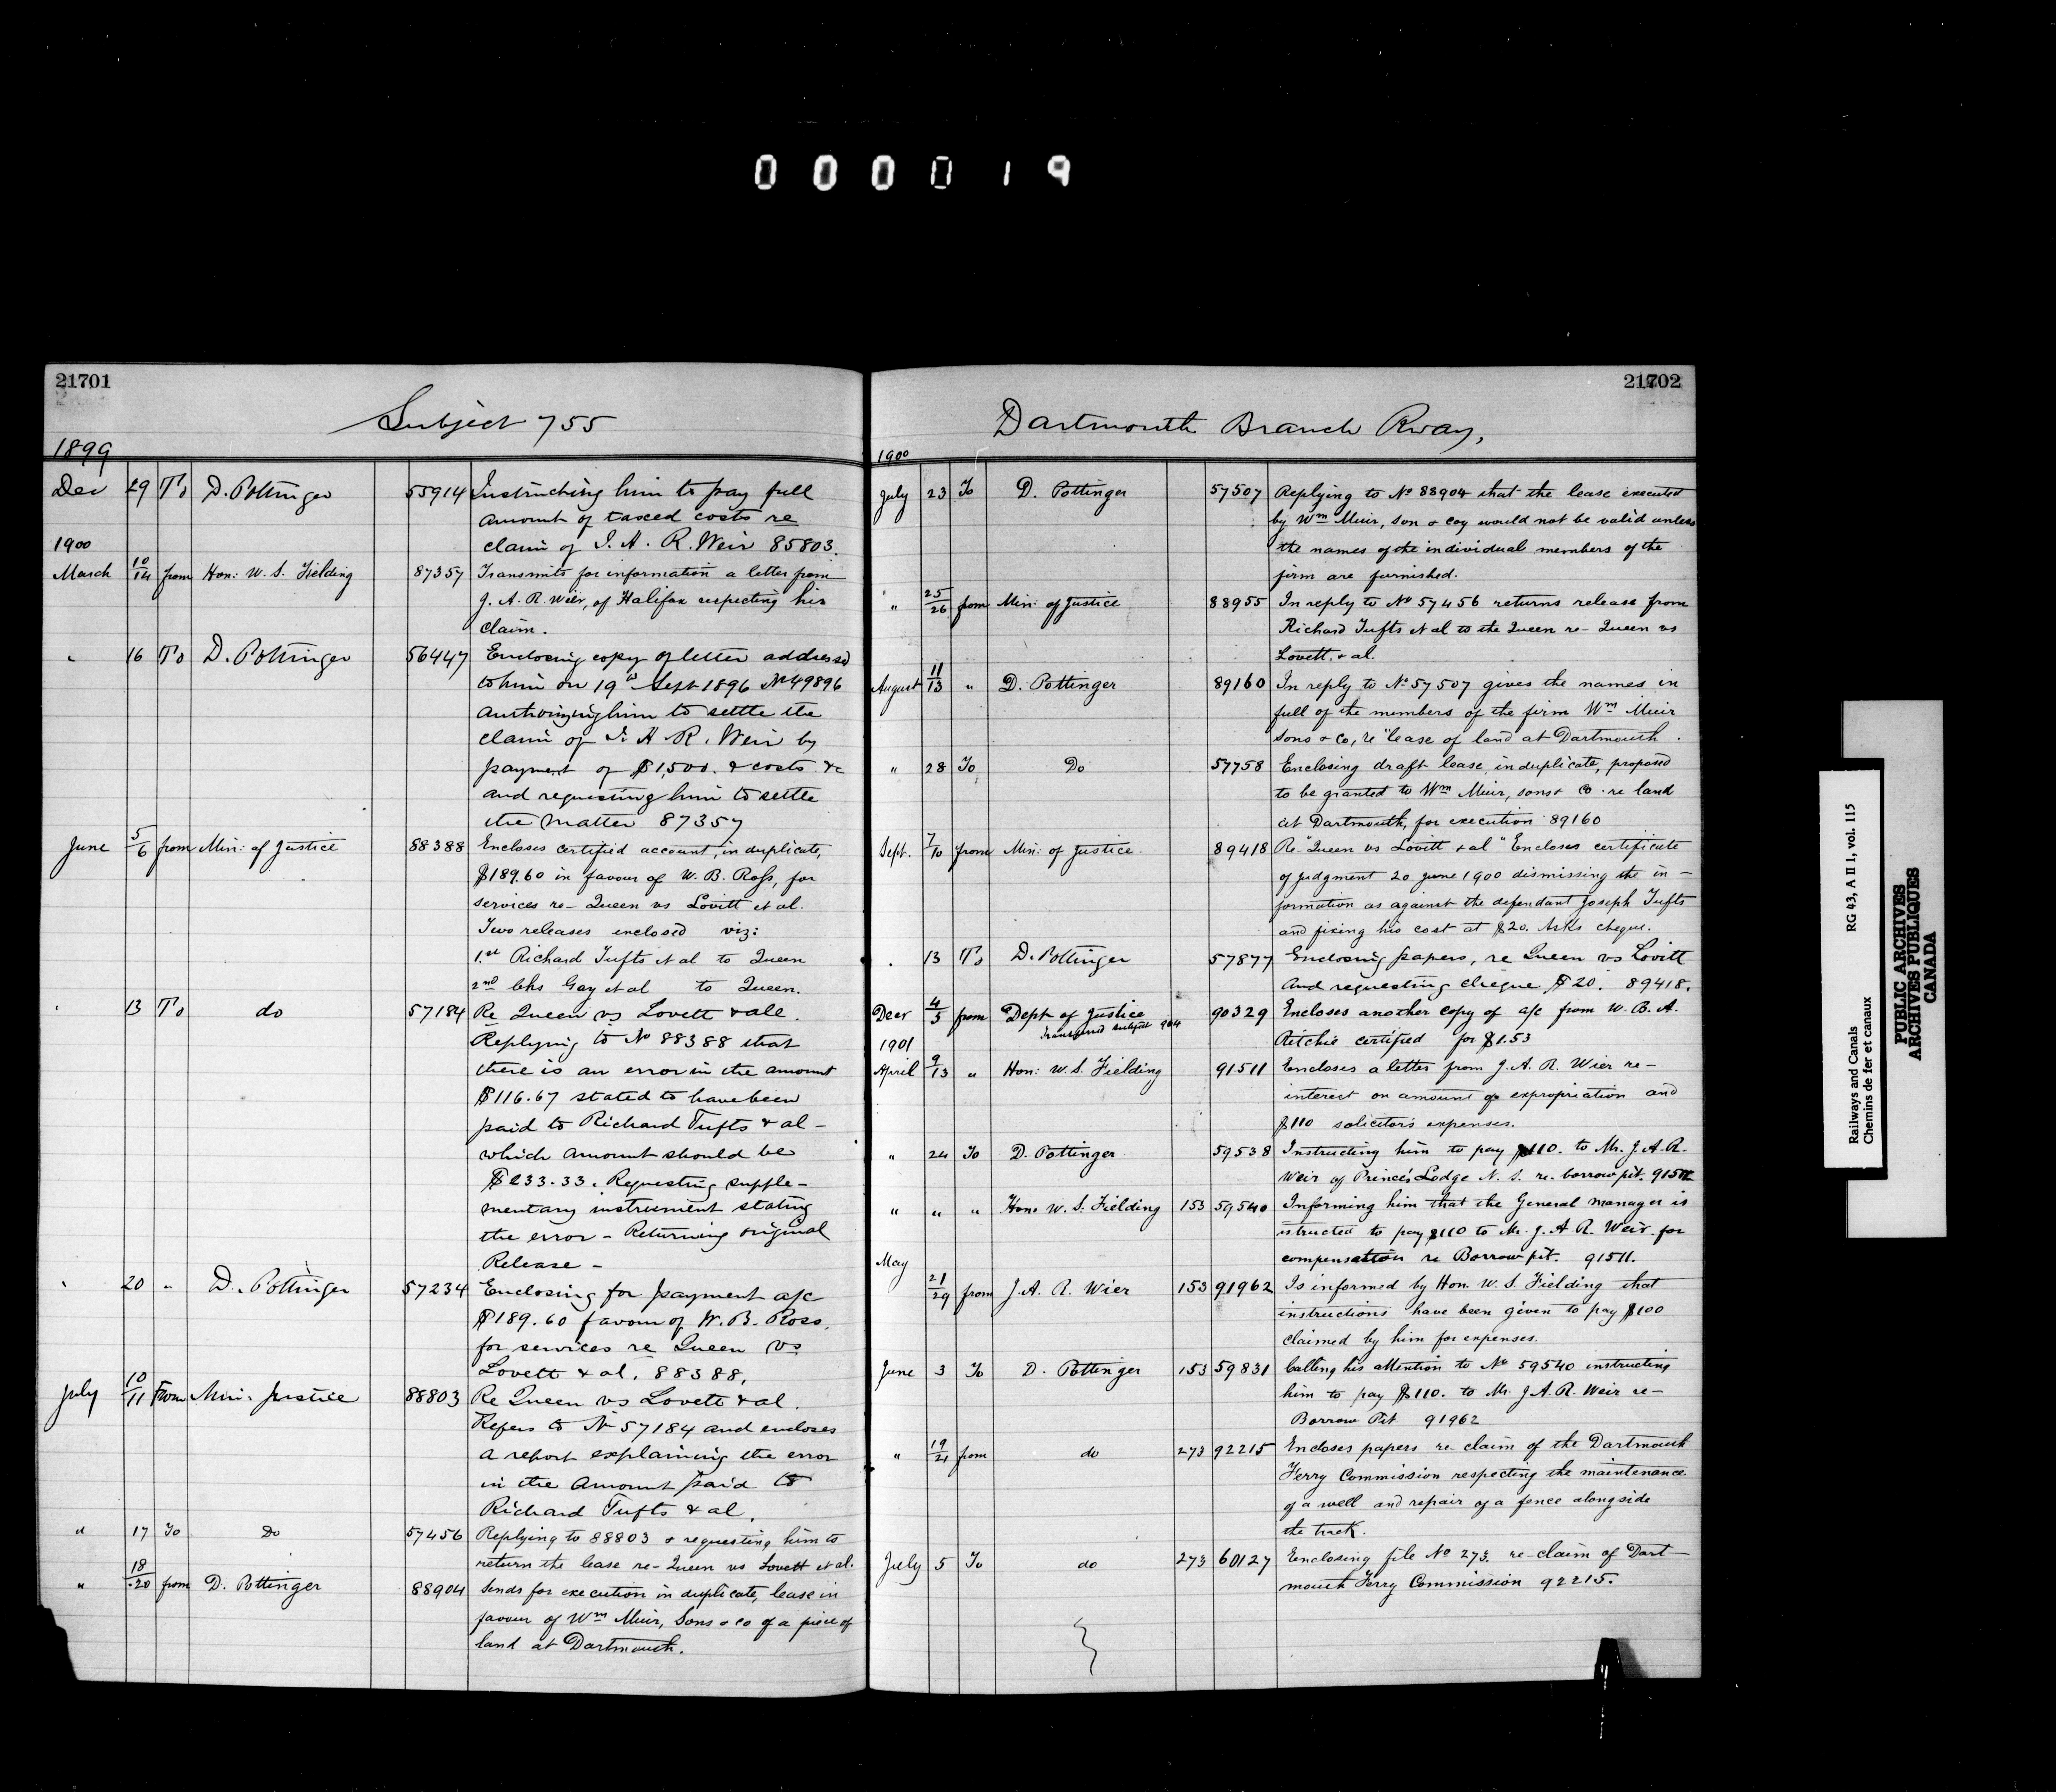 000019
21701
Subject 755
1899
Dec 29 To D. Pottinger 55914 Instructing him to pay full
amount of taxed costs re
claim of J. A. R. Weir 85803.
1900
March 10/14 from Hon: W. S. Fielding 87357 Transmits for information a letter from
J. A. R. Weir, of Halifax respecting his
claim.
" 16 To D. Pottinger 56447 Enclosing copy of letter addressed
to him on 19th Sept 1896 No 49896
authorizing him to settle the
claim of J. A R. Weir by
payment of $1,500. & costs &c
and requesting him to settle
the matter 87357
June 5/6 from Min: of Justice 88388 Encloses certified account, in duplicate,
$189.60 in favour of W. B. Ross, for
services re- Queen vs Lovitt et al.
Two releases enclosed viz:
1.st Richard Tufts et al to Queen
2nd Chs Gay et al to Queen.
" 13 To do 57184 Re Queen vs Lovett & all.
Replying to No 88388 that
there is an error in the amount
$116.67 stated to have been
paid to Richard Tufts & al -
which amount should be
$233.33. Requesting supple-
mentary instrument stating
the error - Returning original
Release -
" 20 " D. Pottinger 57234 Enclosing for payment a/c
$189.60 favour of W. B. Ross.
for services re Queen vs
Lovett & al. 88388.
July 10/11 From Min. Justice 88803 Re Queen vs Lovett & al.
Refers to No 57184 and encloses
a report explaining the error
in the amount paid to
Richard Tufts & al.
" 17 To Do 57456 Replying to 88803 & requesting him to
return the lease re- Queen vs Lovett et al.
" 18/20 from D. Pottinger 88904 Sends for execution in duplicate, lease in
favour of Wm Muir, Sons & Co of a piece of
land at Dartmouth.
21702
Dartmouth Branch Rway,
1900
July 23 To D. Pottinger 57507 Replying to No 88904 that the lease executed
by Wm Muir, son & coy would not be valid unless
the names of the individual members of the
firm are furnished.
" 25/26 from Min: of Justice 88955 In reply to No 57456 returns release from
Richard Tufts et al to the Queen re- Queen vs
Lovett & al.
August 11/13 " D. Pottinger 89160 In reply to No 57507 gives the names in
full of the members of the firm Wm Muir
sons & Co, re lease of land at Dartmouth.
" 28 To Do 57758 Enclosing draft lease in duplicate, proposed
to be granted to Wm Muir, sons & Co. re land
at Dartmouth, for execution 89160
Sept. 7/10 from Min: of Justice 89418 Re- "Queen vs Lovitt & al" Encloses certificate
of judgment 20 June 1900 dismissing the in-
formation as against the defendant Joseph Tufts
and fixing his cost at $20. Asks cheque.
" 13 To D. Pottinger 57877 Enclosing papers, re Queen vs Lovitt
and requesting cheque $20. 89418.
Decr 4/5 from Dept of Justice 90329 Encloses another copy of a/c from W. B. A.
Transferred subject 904
Ritchie certified for $1.53
1901
April 9/13 " Hon: W. S. Fielding 91511 Encloses a letter from J. A. R. Wier re-
interest on amount of expropriation and
$110 solicitors expenses.
" 24 To D. Pottinger 59538 Instructing him to pay $110. to Mr. J. A. R.
Weir of Prince's Lodge N. S. re. borrow pit. 91511
" " " Hon. W. S. Fielding 153 59540 Informing him that the General manager is
istructed to pay $110 to Mr. J. A R. Weir for
compensation re Borrow pit. 91511.
May 21/29 from J. A. R. Wier 153 91962 Is informed by Hon. W. S. Fielding that
instructions have been given to pay $100
claimed by him for expenses.
June 3 To D. Pottinger 153 59831 Calling his attention to No 59540 instructing
him to pay $110. to Mr. J A. R. Weir re-
Borrow Pit 91962
" 19/21 from do 273 92215 Encloses papers re- claim of the Dartmouth
Ferry Commission respecting the maintenance
of a well and repair of a fence alongside
the track.
July 5 To do 273 60127 Enclosing file No 273. re- claim of Dart
mouth Ferry Commission 92215.
Railways and Canals RG 43, A II 1, vol. 115
Chemins de fer et canaux
PUBLIC ARCHIVES
ARCHIVES PUBLIQUES
CANADA